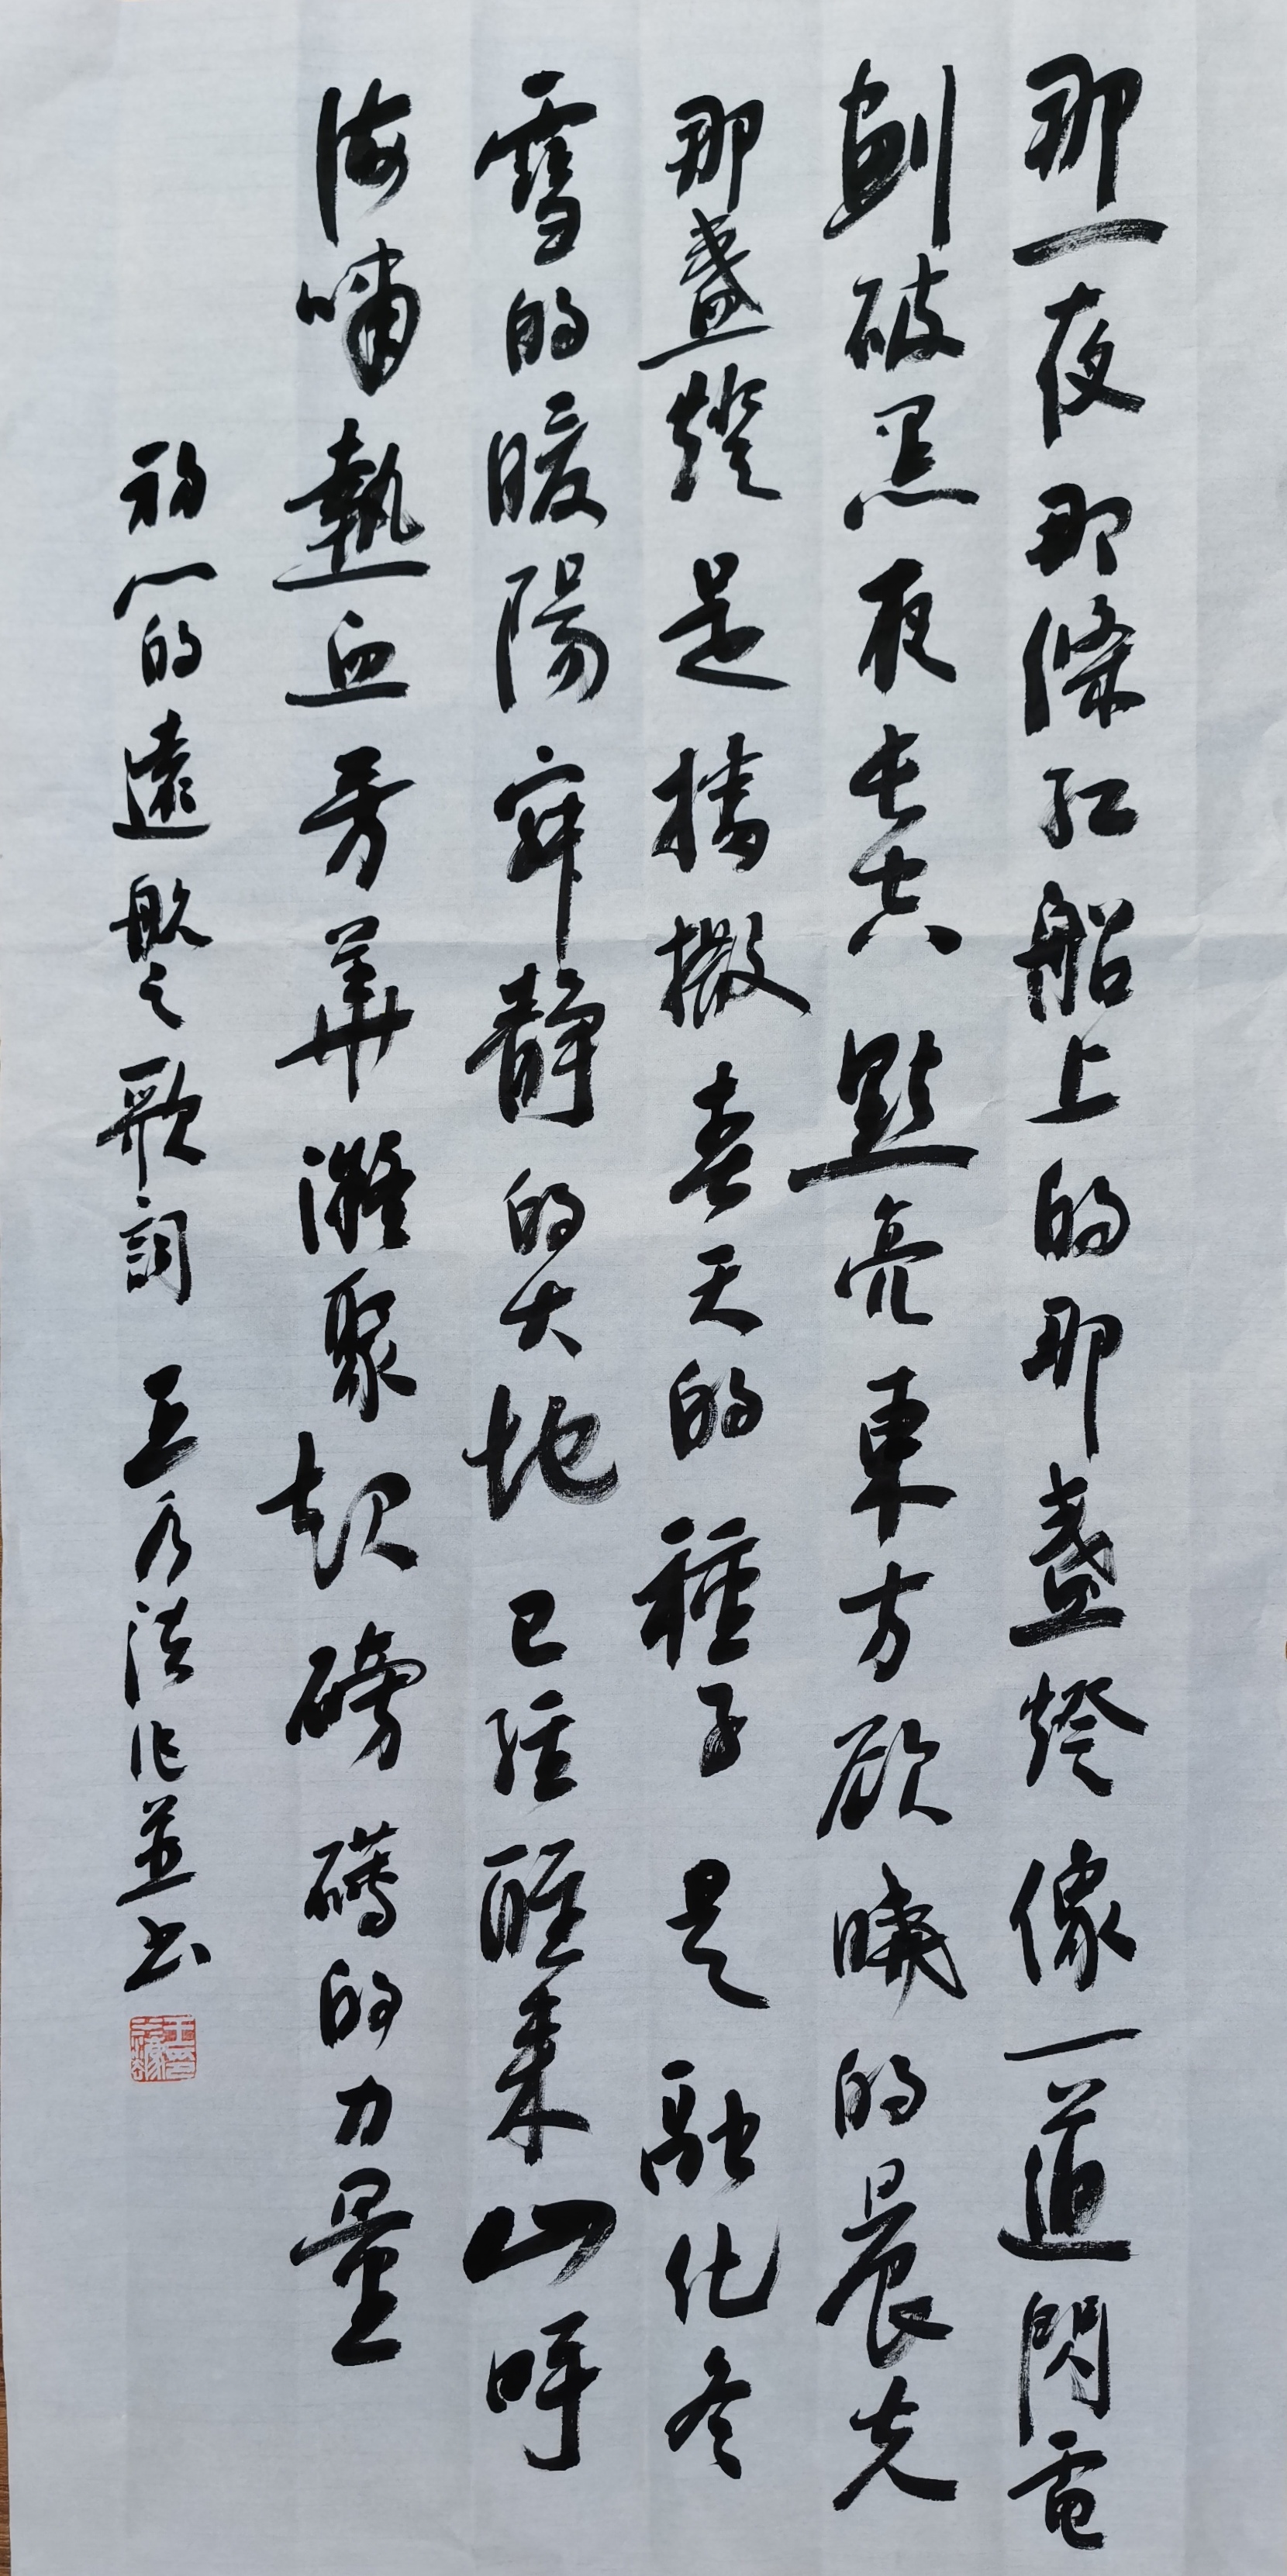 那一夜那條红船上的那盞燈像一道閃電
劃破黑夜长空點亮東方欲曉的晨光
那盞燈是播撒春天的種子是融化冬
雪的暖陽寂靜的大地已經醒來山呼
海嘯熱血芳華凝聚起磅礴的力量
初心的遠航之歌詞 王乃法作並书